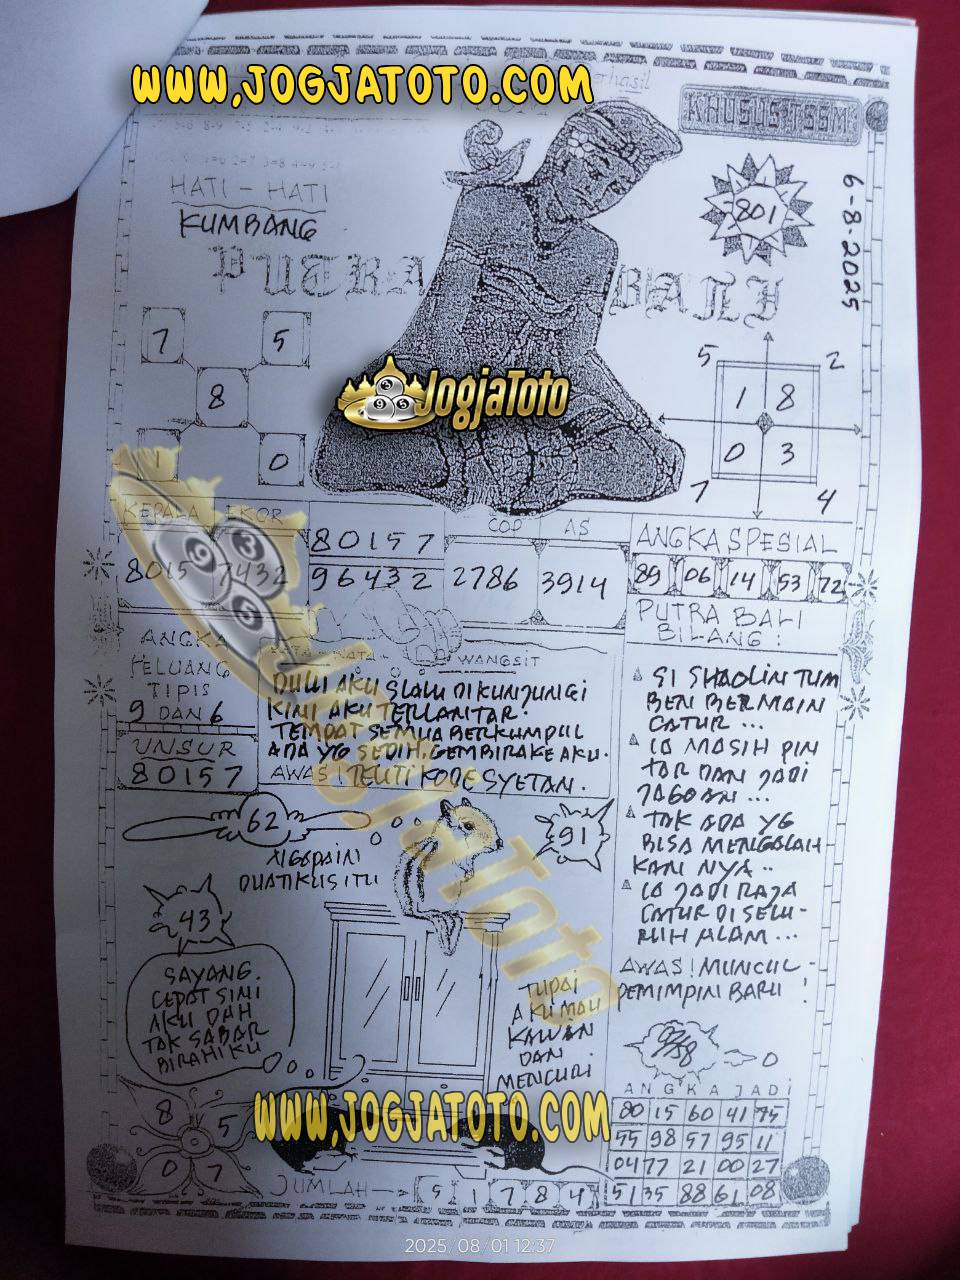 WWW.JOGJATOTO.COM
hasil
KHUSUS: TSSM
HATI - HATI
KUMBANG
801
6-8-2025
PUTRA BALI
7 5
8
1 0
JogjaToto
5 2
1 8
0 3
7 4
KEPALA EKOR
8015 7432
80157
96432
COP AS
2786 3914
ANGKA SPESIAL
89 06 14 53 72
PUTRA BALI
BILANG :
ANGKA
PELUANG
TIPIS
9 DAN 6
UNSUR
80157
WANGSIT
DULU AKU SLALU DIKUNJUNGI
KINI AKU TERLANTAR.
TEMPAT SEMUA BERKUMPUL
ADA YG SEDIH, GEMBIRAKE AKU.
AWAS! TELITI KODE SYETAN.
SI SHAOLIN TUM
BEN BERMAIN
CATUR ...
IA MASIH PIN
TAR DAN JADI
JAGOAN ...
TAK ADA YG
BISA MENGALAH
KAN NYA ..
IA JADI RAJA
CATUR DI SELU-
RUH ALAM ...
AWAS! MUNCUL
PEMIMPIN BARU !
62
NGAPAIN
DUA TIKUS ITU
91
43
SAYANG.
CEPAT SINI
AKU DAH
TAK SABAR
BIRAHIKU
TUPAI
AKU MAU
KAWAN
DAN
MENCURI
JogjaToto
0
ANGKA JADI
80 15 60 41 75
55 98 57 95 11
04 77 21 00 27
51 35 88 61 08
8 5
0 7
WWW.JOGJATOTO.COM
JUMLAH
5 1 7 8 4
2025/08/01 12:37